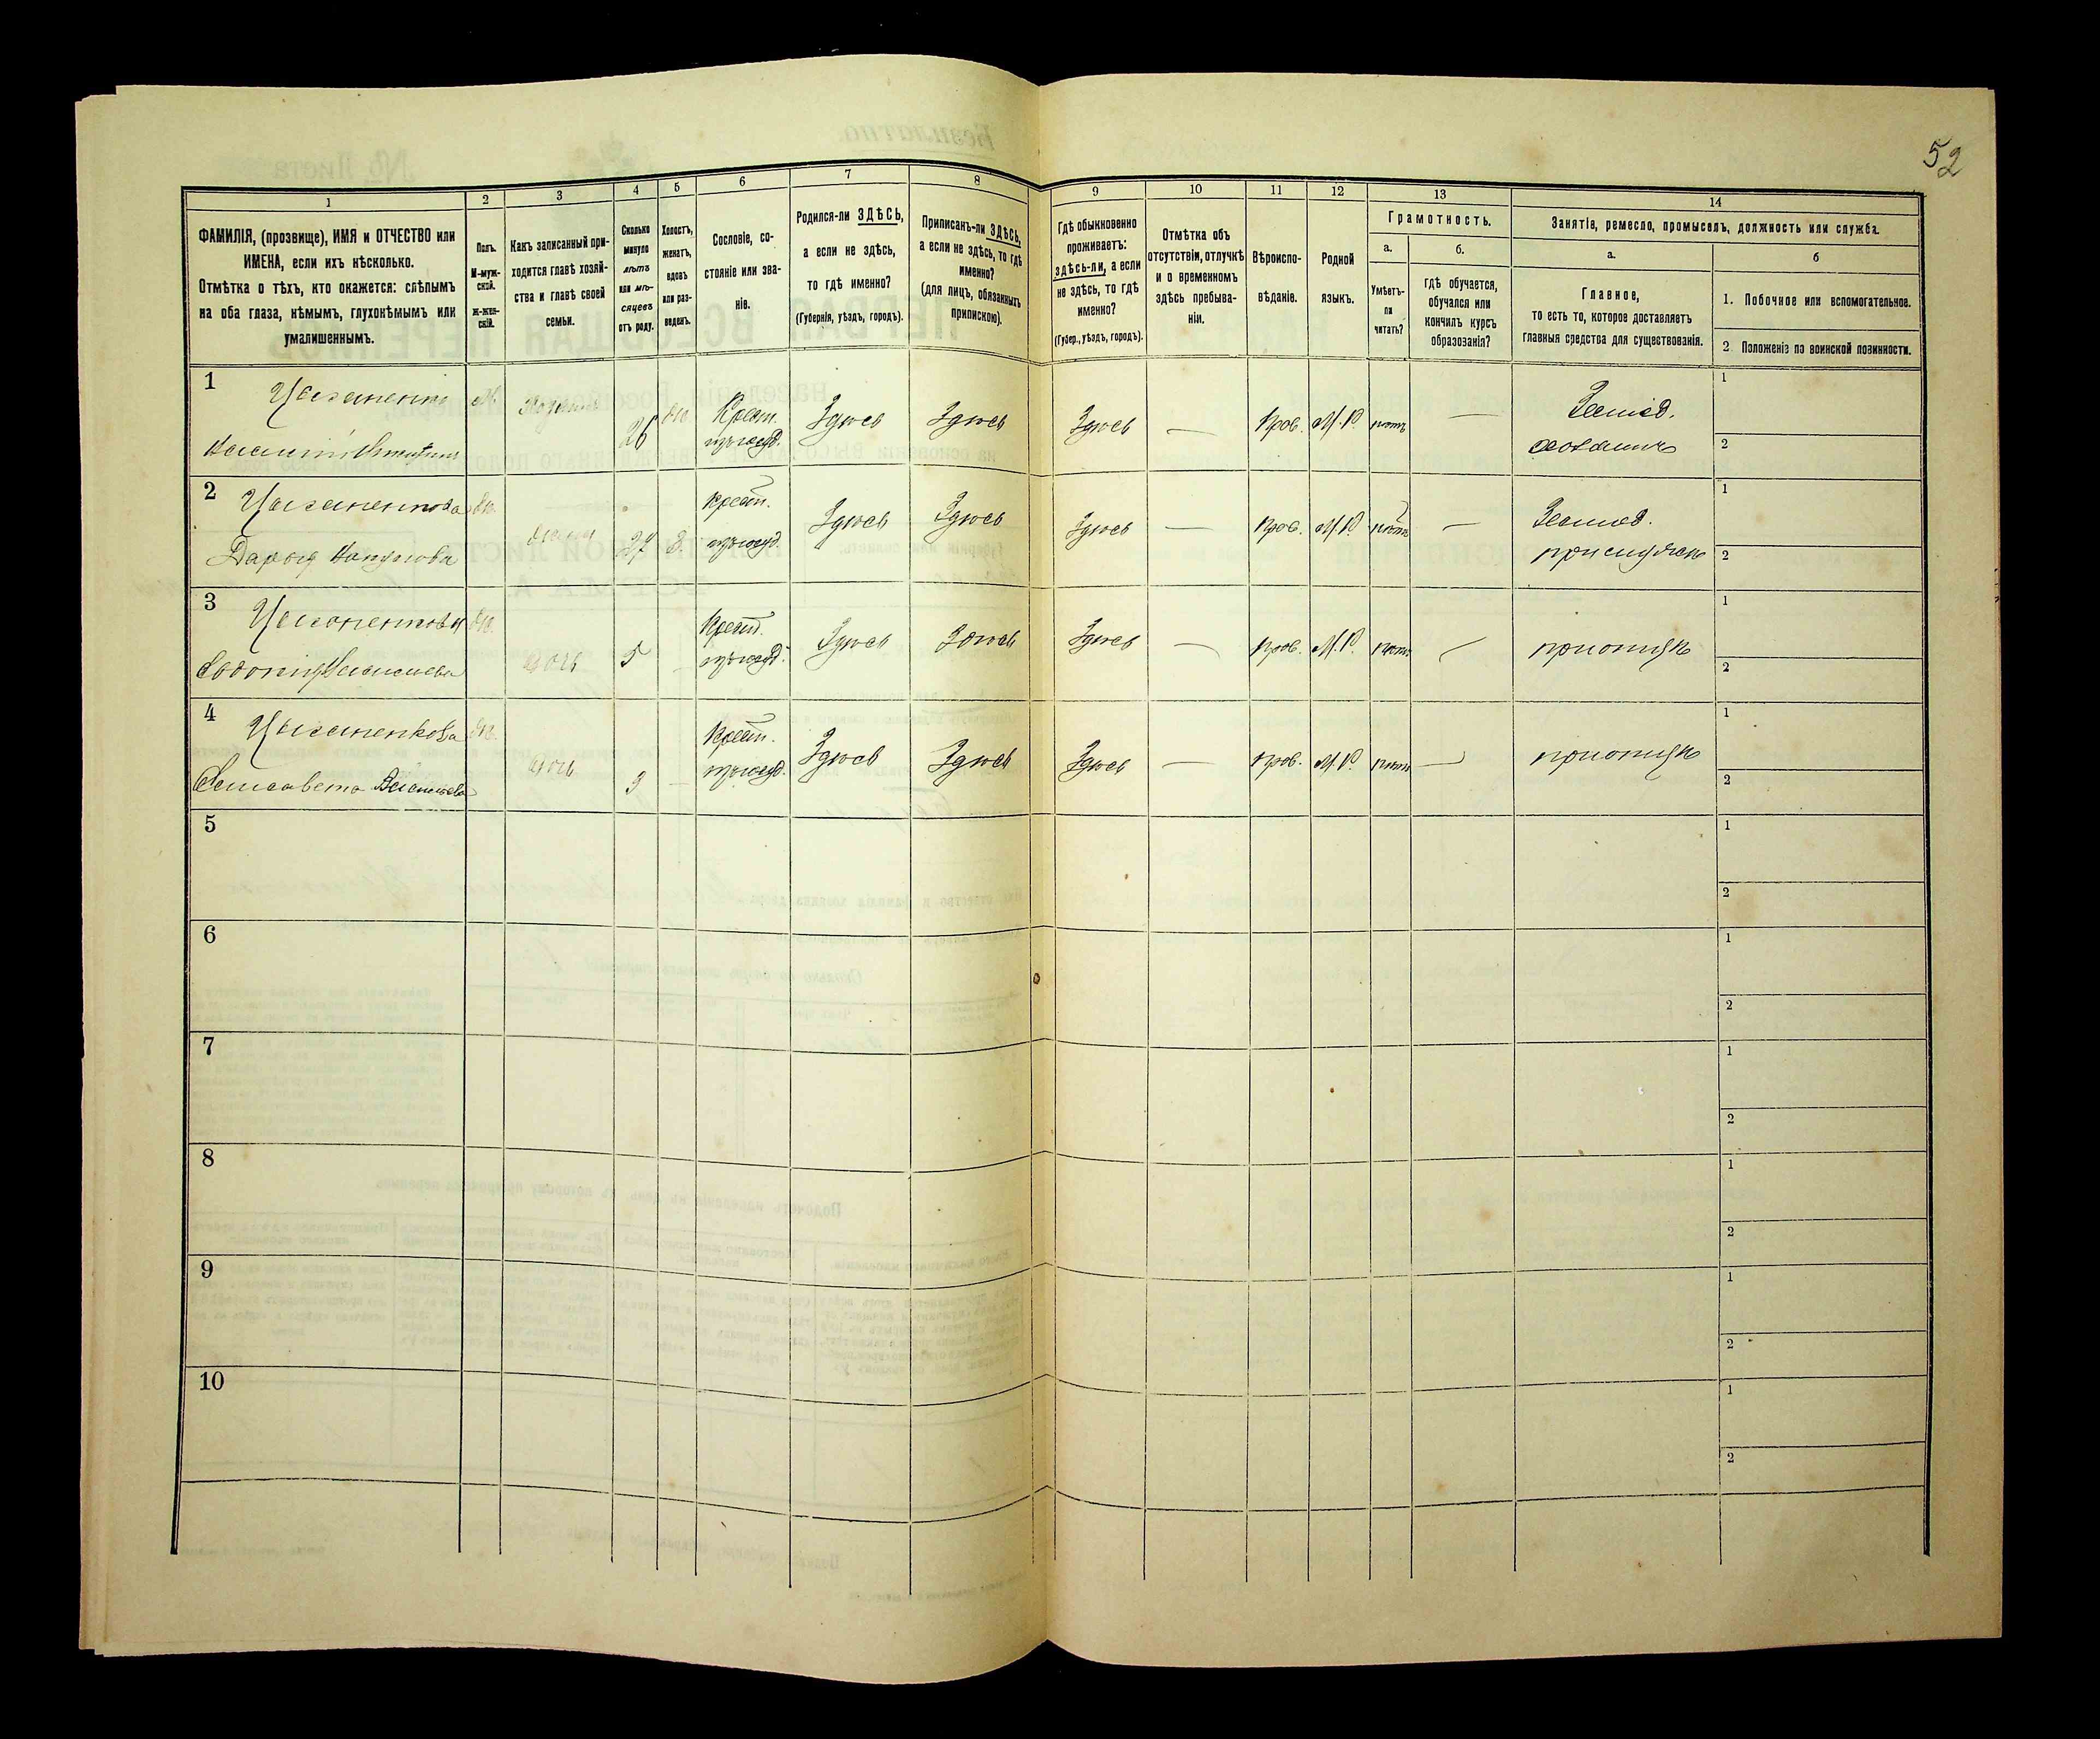 52
1
2
3
4
5
6
7
8
9
10
11
12
13
14
ФАМИЛІЯ, (прозвище), ИМЯ и ОТЧЕСТВО или
ИМЕНА, если ихъ нѣсколько.
Отмѣтка о тѣхъ, кто окажется: слѣпымъ
на оба глаза, нѣмымъ, глухонѣмымъ или
умалишеннымъ.
Полъ.
М-муж-
ской.
Ж-жен-
скій.
Какъ записанный при-
ходится главѣ хозяй-
ства и главѣ своей
семьи.
Сколько
минуло
лѣтъ
или мѣ-
сяцевъ
отъ роду.
Холостъ,
женатъ,
вдовъ
или раз-
веденъ.
Сословіе, со-
стояніе или зва-
ніе.
Родился-ли ЗДѢСЬ,
а если не здѣсь,
то гдѣ именно?
(Губернія, уѣздъ, городъ).
Приписанъ-ли ЗДѢСЬ,
а если не здѣсь, то гдѣ
именно?
(для лицъ, обязанныхъ
припискою).
Гдѣ обыкновенно
проживаетъ:
здѣсь-ли, а если
не здѣсь, то гдѣ
именно?
(Губер., уѣздъ, городъ).
Отмѣтка объ
отсутствіи, отлучкѣ
и о временномъ
здѣсь пребыва-
ніи.
Вѣроиспо-
вѣданіе.
Родной
языкъ.
Грамотность.
а.
б.
Умѣетъ-
ли
читать?
гдѣ обучается,
обучался или
кончилъ курсъ
образованія?
Занятія, ремесло, промыселъ, должность или служба.
а.
б
Главное,
то есть то, которое доставляетъ
главныя средства для существованія.
1. Побочное или вспомогательное.
2 Положеніе по воинской повинности.
1
М. 26 Крест. Здѣсь Здѣсь Здѣсь — Прав. М.Р. нѣтъ — Землед.
хозяинъ
1
2
2 Цыганенкова
Дарья жена 27 З. Крест. Здѣсь Здѣсь Здѣсь — Прав. М.Р. нѣтъ — Землед.
1
2
3
дочь 5 Крест. Здѣсь Здѣсь Здѣсь — Прав. М.Р. нѣтъ — при отцѣ
1
2
4 Цыганенкова
Елисавета Васильева дочь 3 — Крест. Здѣсь Здѣсь Здѣсь — Прав. М.Р. нѣтъ — при отцѣ
1
2
5
1
2
6
1
2
7
1
2
8
1
2
9
1
2
10
1
2